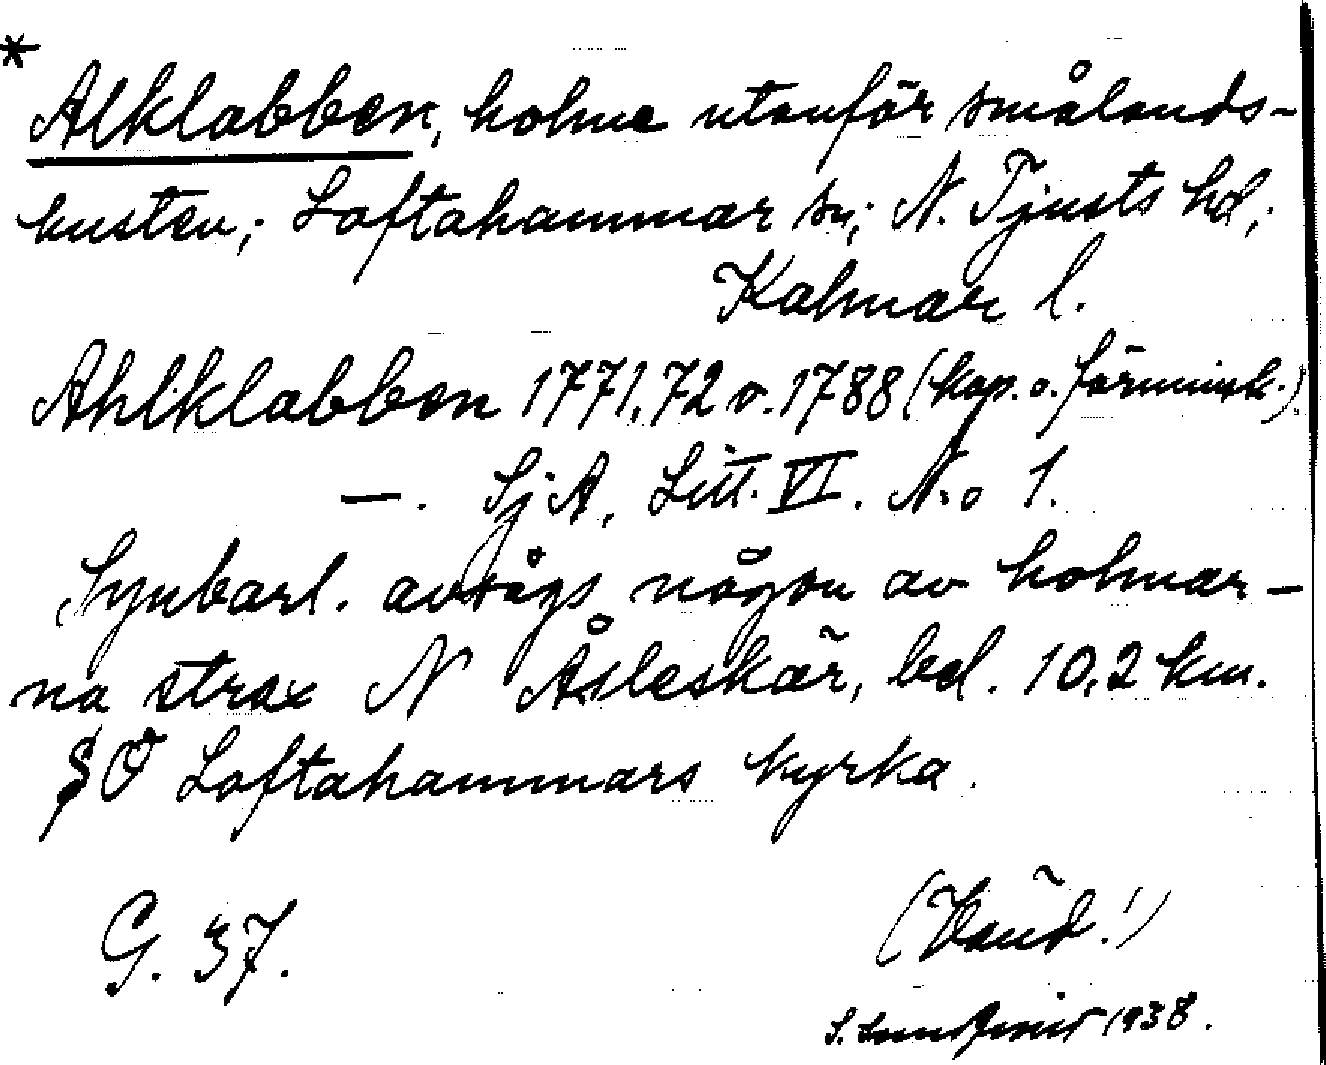 *
Alklabben, holme utanför smålands-
kusten; Loftahammar sn; N. Tjusts hd;
Kalmar l.
Ahlklabben 1771, 72 o. 1788 (kop. o. förminsk.)
—. SjA, Litt. VI. N:o 1.
Synbarl. avsågs någon av holmar-
na strax N Åsleskär, bel. 10,2 km.
SO Loftahammars kyrka.
G. 37.
(Vänd!)
S. 1938.